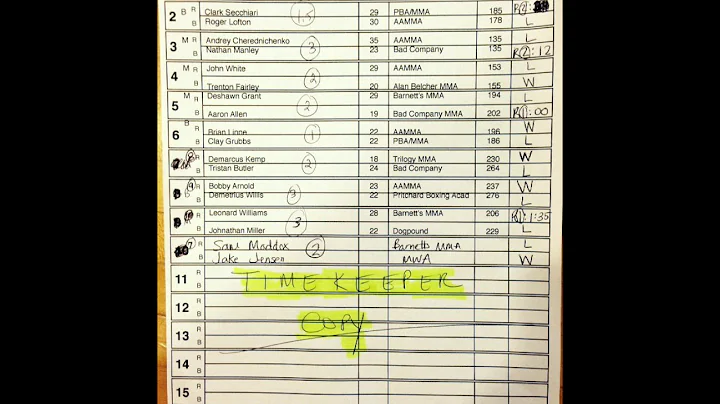 2 B R Clark Secchiari 1.5 29 PBA/MMA 185
B Roger Lofton 30 AAMMA 178 L
3 M R Andrey Cherednichenko 3 35 AAMMA 135 L
B Nathan Manley 23 Bad Company 135 R(2):12
4 M R John White 2 29 AAMMA 153 L
B Trenton Fairley 20 Alan Belcher MMA 155 W
5 M R Deshawn Grant 2 29 Barnett's MMA 194 L
B Aaron Allen 19 Bad Company MMA 202 R(1):00
6 B R Brian Linne 1 22 AAMMA 196 W
B Clay Grubbs 22 PBA/MMA 186 L
Demarcus Kemp 2 18 Trilogy MMA 230 W
Tristan Butler 24 Bad Company 264 L
9 R Bobby Arnold 3 23 AAMMA 237 W
B Demetrius Willis 22 Pritchard Boxing Acad 276 L
10 R Leonard Williams 3 28 Barnett's MMA 206 R(1):1:35
B Johnathan Miller 22 Dogpound 229 L
7 R Sam Maddox 2 Barnetts MMA L
B Jake Jensen MWA W
11 R TIME KEEPER
B
12 R COPY
B
13 R
B
14 R
B
15 R
B